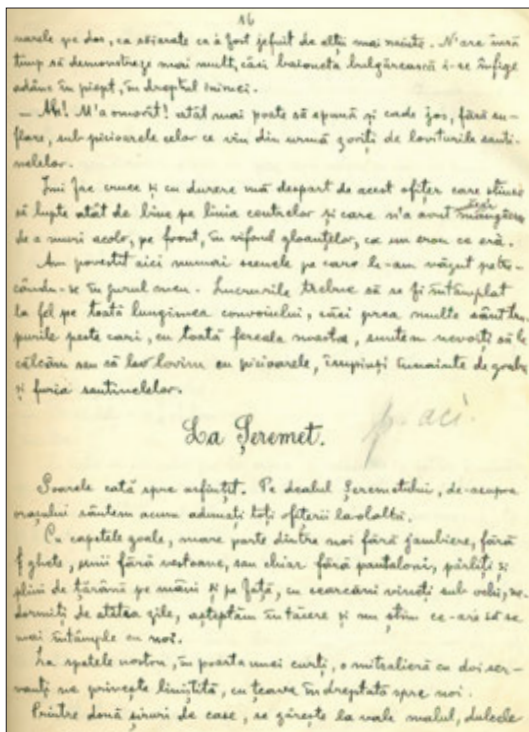 16
narele pe dos, ca să arate ce a fost jefuit de alții mai nainte. N'are însă
timp să demonstreze mai mult, căci baioneta bulgărească i-se înfige
adânc în piept, în dreptul inimei.
— Ah! M'a omorît! atât mai poate să spună și cade jos, fără su-
flare, sub picioarele celor ce vin din urmă zoriți de loviturile senti-
nelelor.
Îmi fac cruce și cu durere mă despart de acest ofițer care știuse
să lupte atât de bine pe linia centrelor și care n'a avut mângâierea
de a muri acolo, pe front, în viforul gloanțelor, ca un erou ce eră.
Am povestit aici numai scenele pe care le-am văzut petre-
cându-se în jurul meu. Lucrurile trebue să se fi întâmplat
la fel pe toată lungimea convoiului, căci prea multe sânt tru-
purile peste cari, cu toată fereala noastră, suntem nevoiți să le
călcăm sau să le lovim cu picioarele, împinși înainte de graba
și furia santinelelor.
p. aci.
La Șeremet.
Soarele cată spre asfințit. Pe dealul Șeremetului, de-asupra
orașului sântem acum adunați toți ofițerii laolaltă.
Cu capetele goale, mare parte dintre noi fără jambiere, fără
ghete, unii fără vestoane, sau chiar fără pantaloni, pârliți și
plini de țărână pe mâini și pe față, cu cearcăni vineți sub ochi, ne-
dormiți de atâtea zile, așteptăm în tăcere și nu știm ce-are să se
mai întâmple cu noi.
La spatele nostru, în poarta unei curți, o mitralieră cu doi ser-
vanți ne privește liniștită, cu țeava îndreptată spre noi.
Printre două șiruri de case, se zărește la vale malul, dulcele